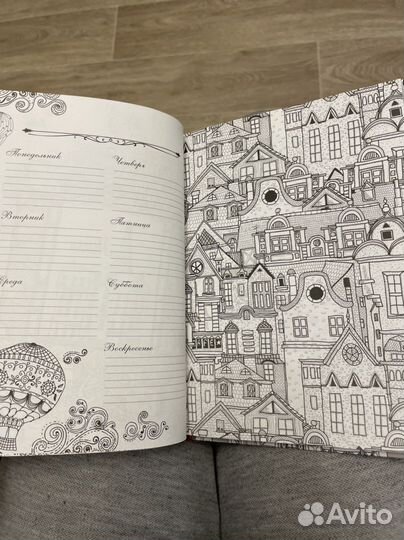 Понедельник
Четверг
Вторник
Пятница
Среда
Суббота
Воскресенье
Avito